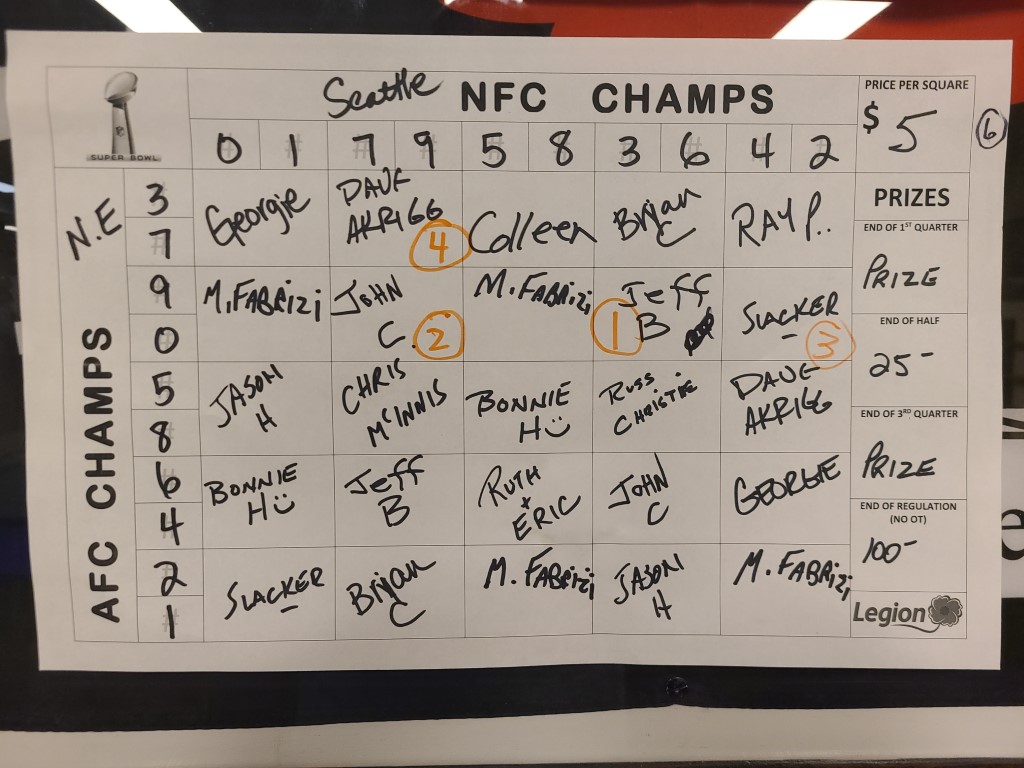 Seattle NFC CHAMPS
PRICE PER SQUARE
$ 5
6
SUPER BOWL
0 1 7 9 5 8 3 6 4 2
N.E
AFC CHAMPS
3
7
9
0
5
8
6
4
2
1
Georgie
DAVE
AKRIGG
4
Colleen
Bryan
C
RAY P..
M.FABRIZI
JOHN
C.
2
M.FABRIZI
Jeff
B
1
SLACKER
3
JASON
H
CHRIS
McINNIS
BONNIE
H
RUSS
CHRISTIE
DAVE
AKRIGG
BONNIE
H
Jeff
B
RUTH
+
ERIC
JOHN
C
GEORGIE
SLACKER
Bryan
C
M.FABRIZI
JASON
H
M.FABRIZI
PRIZES
END OF 1ST QUARTER
PRIZE
END OF HALF
25-
END OF 3RD QUARTER
PRIZE
END OF REGULATION
(NO OT)
100-
Legion